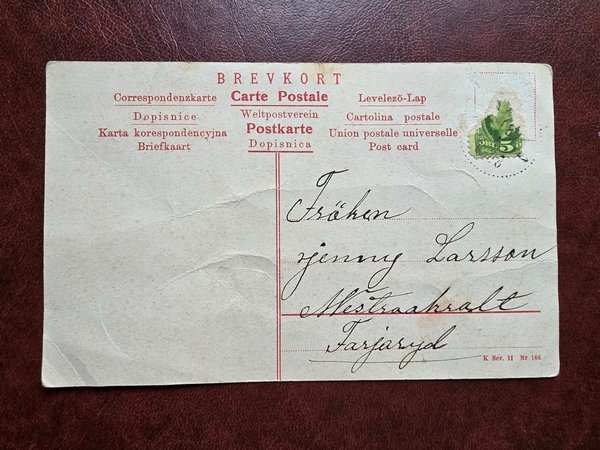 BREVKORT
Correspondenzkarte Carte Postale Levelező-Lap
Dopisnice Weltpostverein Cartolina postale
Karta korespondencyjna Postkarte Union postale universelle
Briefkaart Dopisnica Post card
5
Fröken
Jenny Larsson
Farjaryd
K Ser. 11 Nr 166